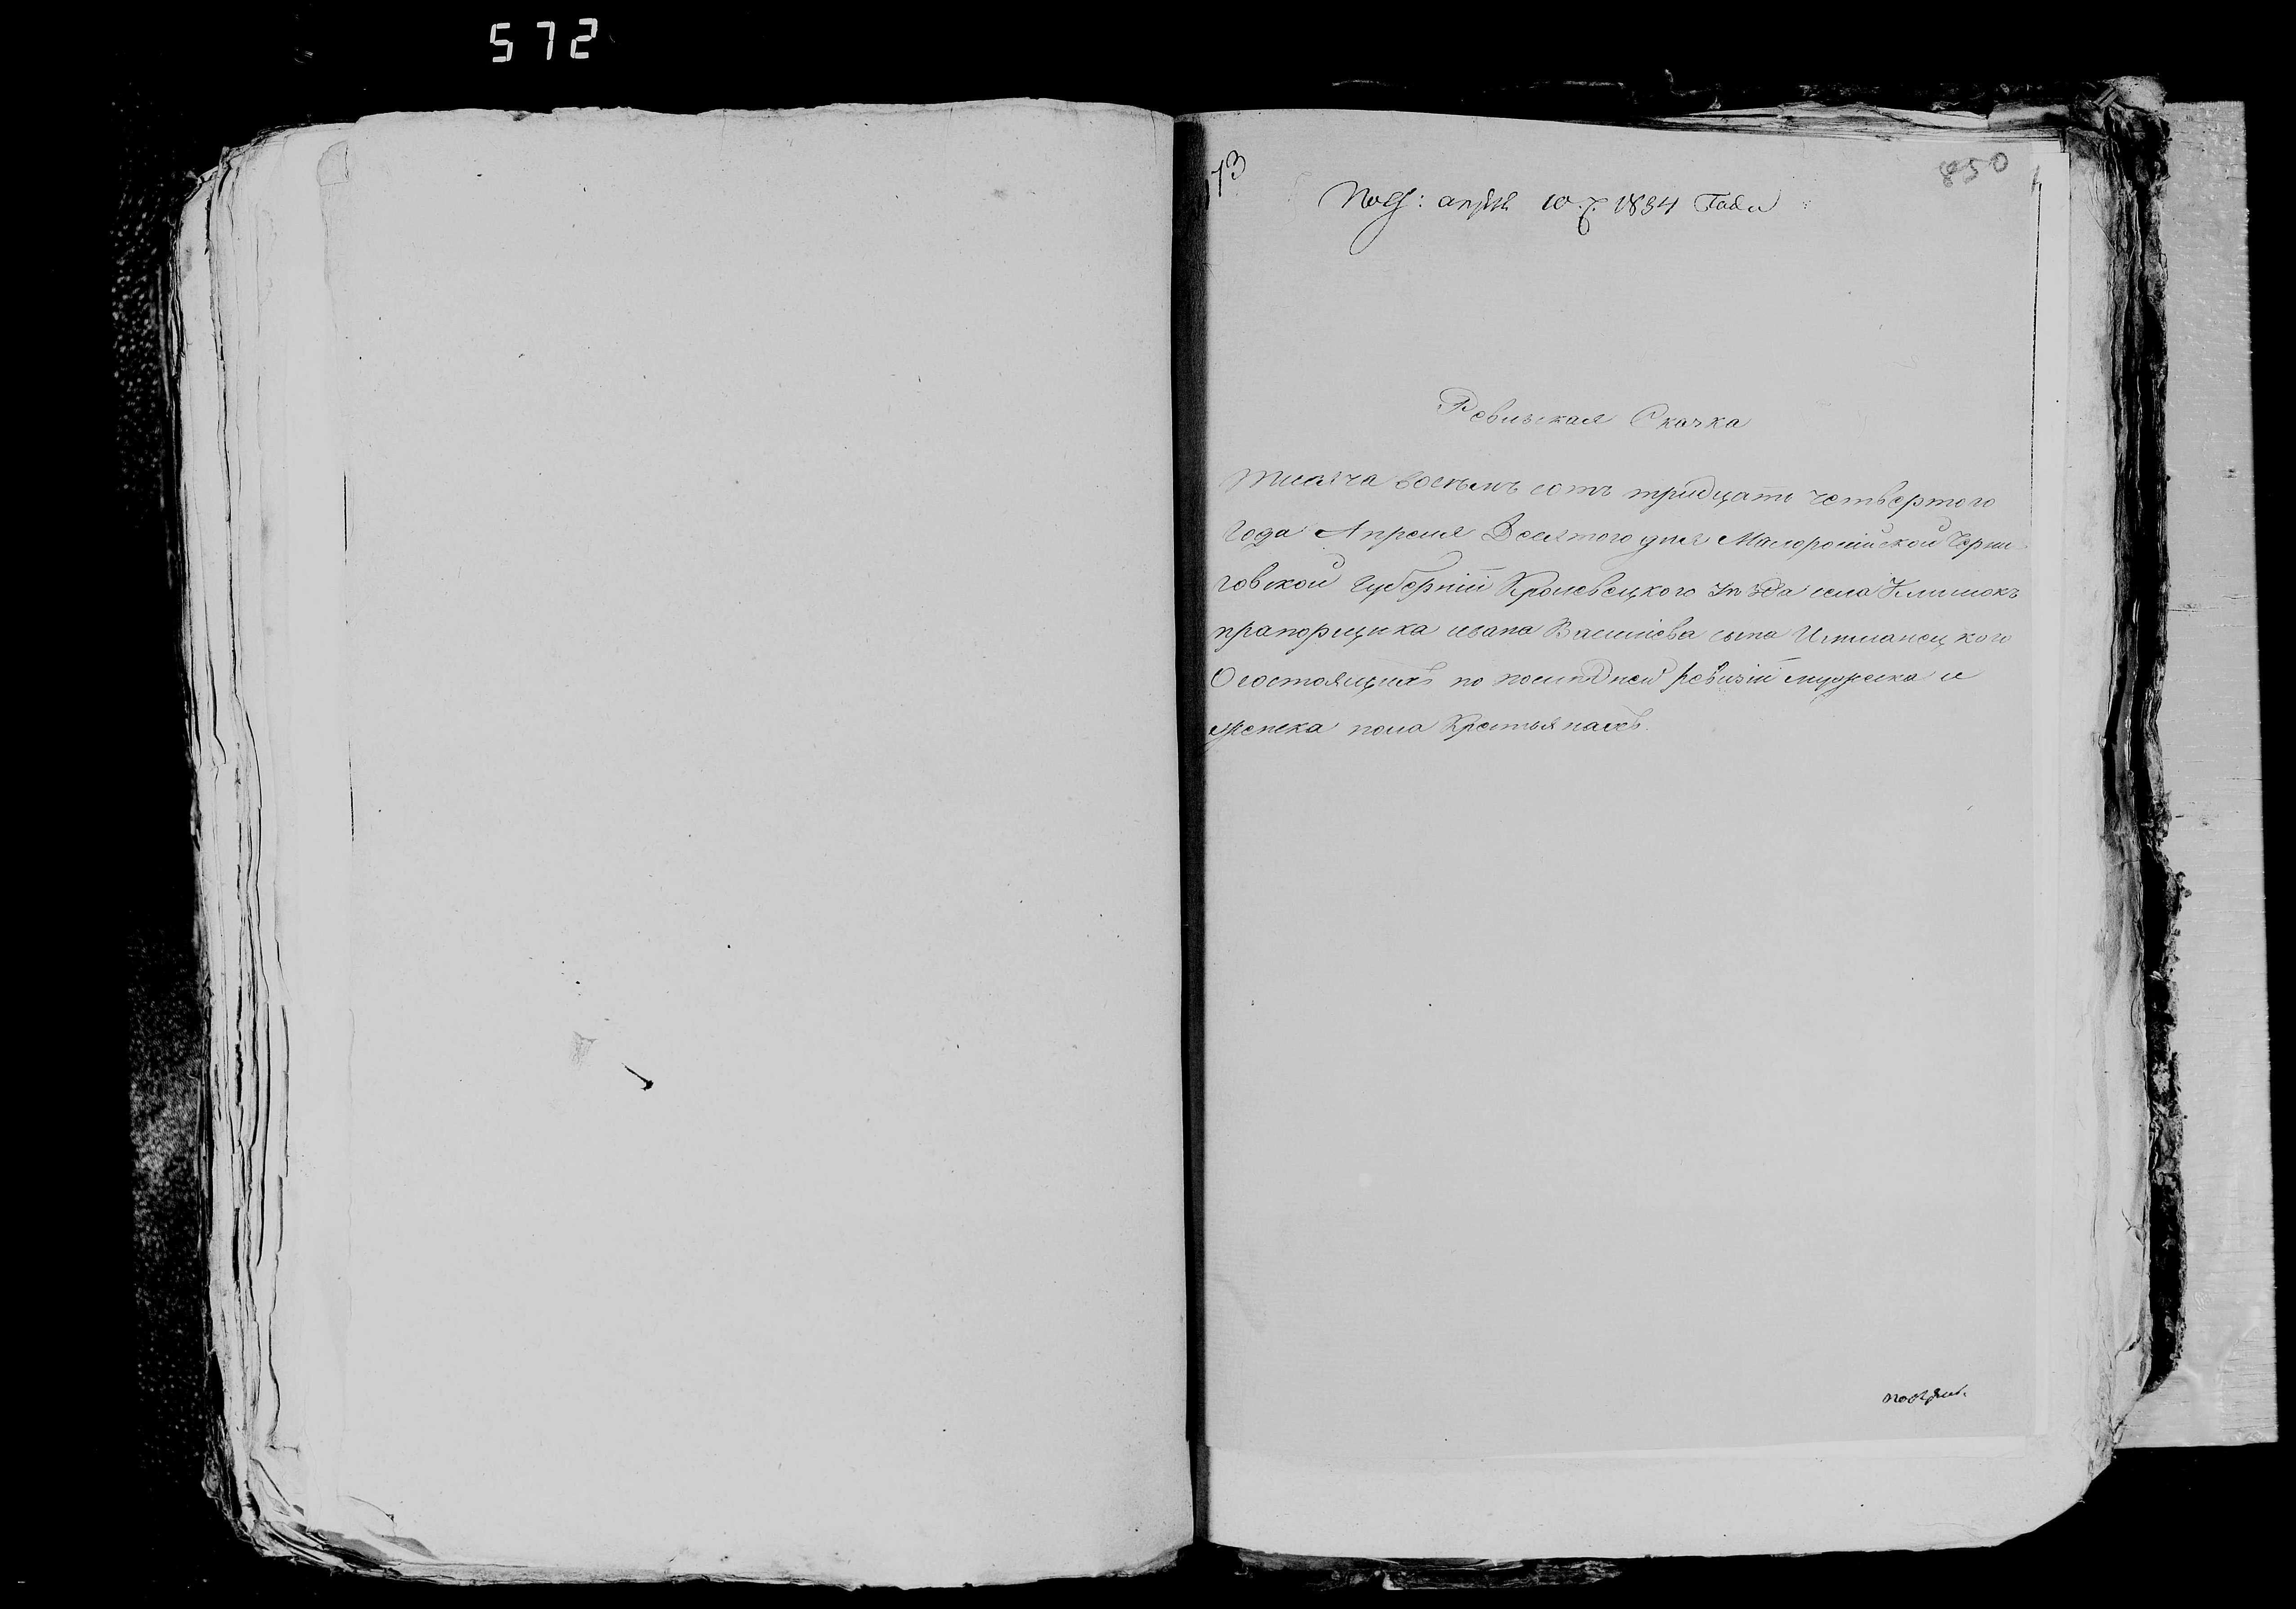 572
13
850
апреля 10 д. 1834 Года
Ревиская Скаска
тисяча восемъ сотъ тридцать четвертого
Года Апреля Десятого дня Малоросійской Черни
говской Губерніи Кролевецкого уезда села Клишокъ
прапорщика ивана Василіева сына
О состоящихъ по последней ревизіи мужеска и
женска пола Крестьянахъ.